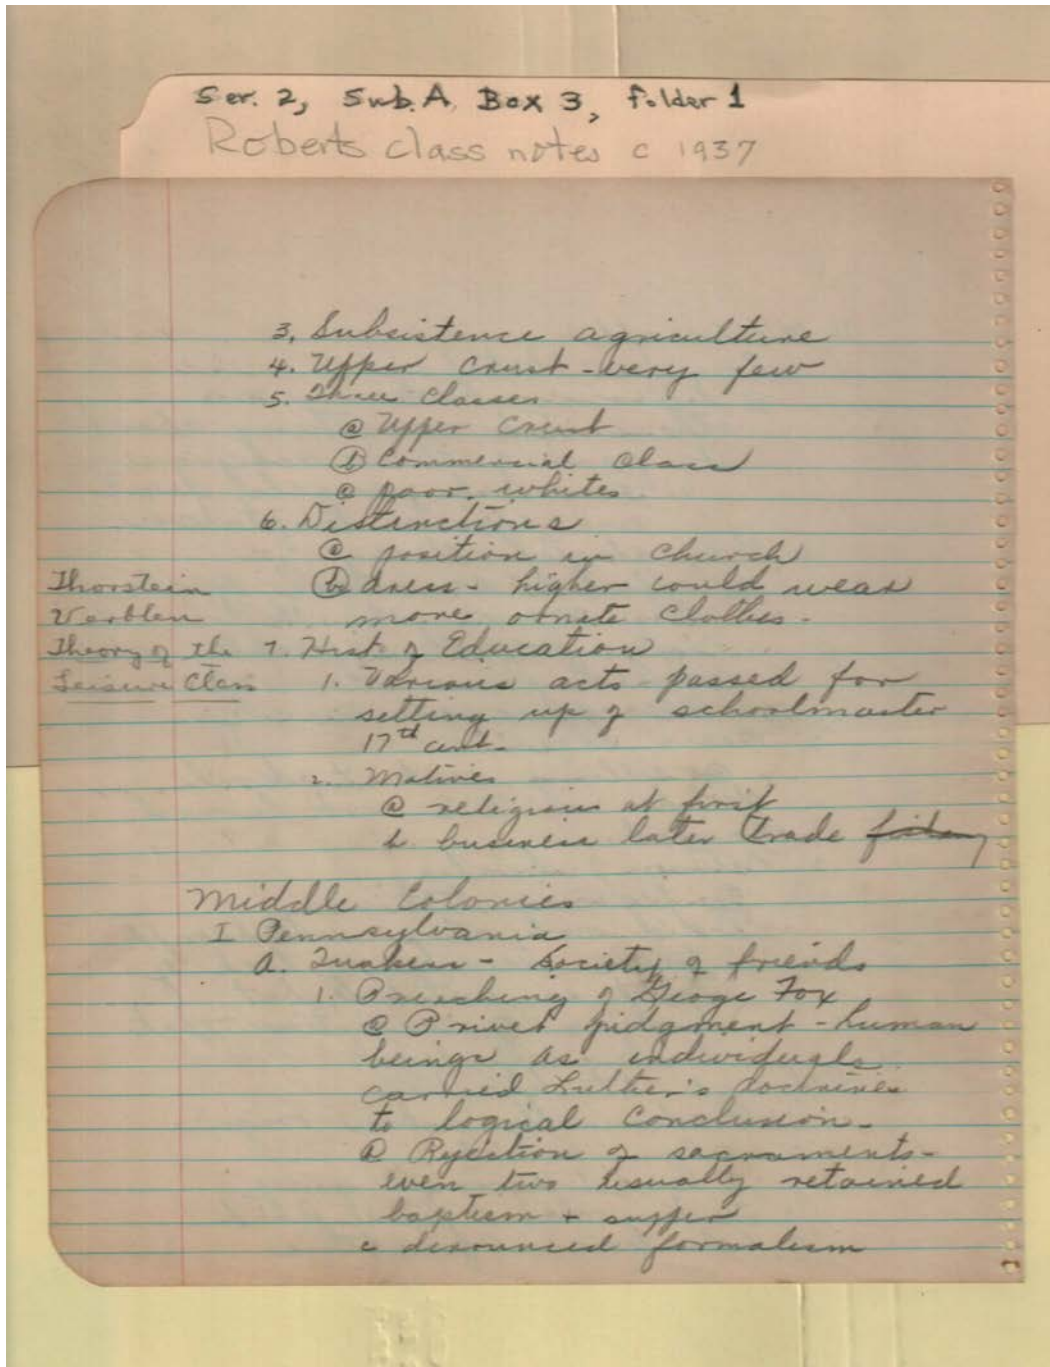 Ser. 2, Sub. A, Box 3, folder 1
Roberts class notes c 1937
3. Subsistence agriculture
4. Upper Crust - very few
5. Three Classes
ⓐ Upper Crust
ⓑ Commercial Class
ⓒ poor whites
6. Distinctions
ⓐ position in church
ⓑ dress - higher could wear
more ornate clothes.
Thorstein
Verblen
Theory of the
Leisure Class
7. Hist of Education
1. Various acts passed for
setting up of schoolmaster
17th cent.
2. Motives
ⓐ religious at first
b business later trade
Middle Colonies
I Pennsylvania
A. Quakers - Society of friends
1. Preaching of George Fox
ⓐ Privet judgment - human
beings as individuals
carried Luther's doctrines
to logical conclusion.
ⓑ Rejection of sacraments -
even two usually retained
baptism + supper
c denounced formalism